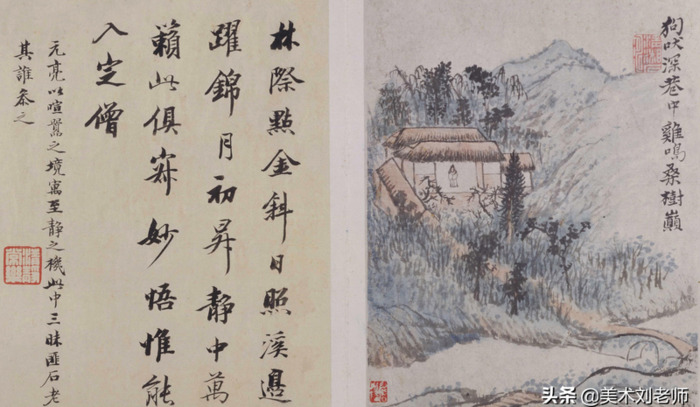 狗吠深巷中雞鳴桑樹巔
林際點金斜日照溪邊
躍錦月初昇靜中萬
籟此俱寂妙悟惟能
入定僧
元亮以喧囂之境寓至靜之機此中三昧匪石老
其誰參之
头条 @美术刘老师